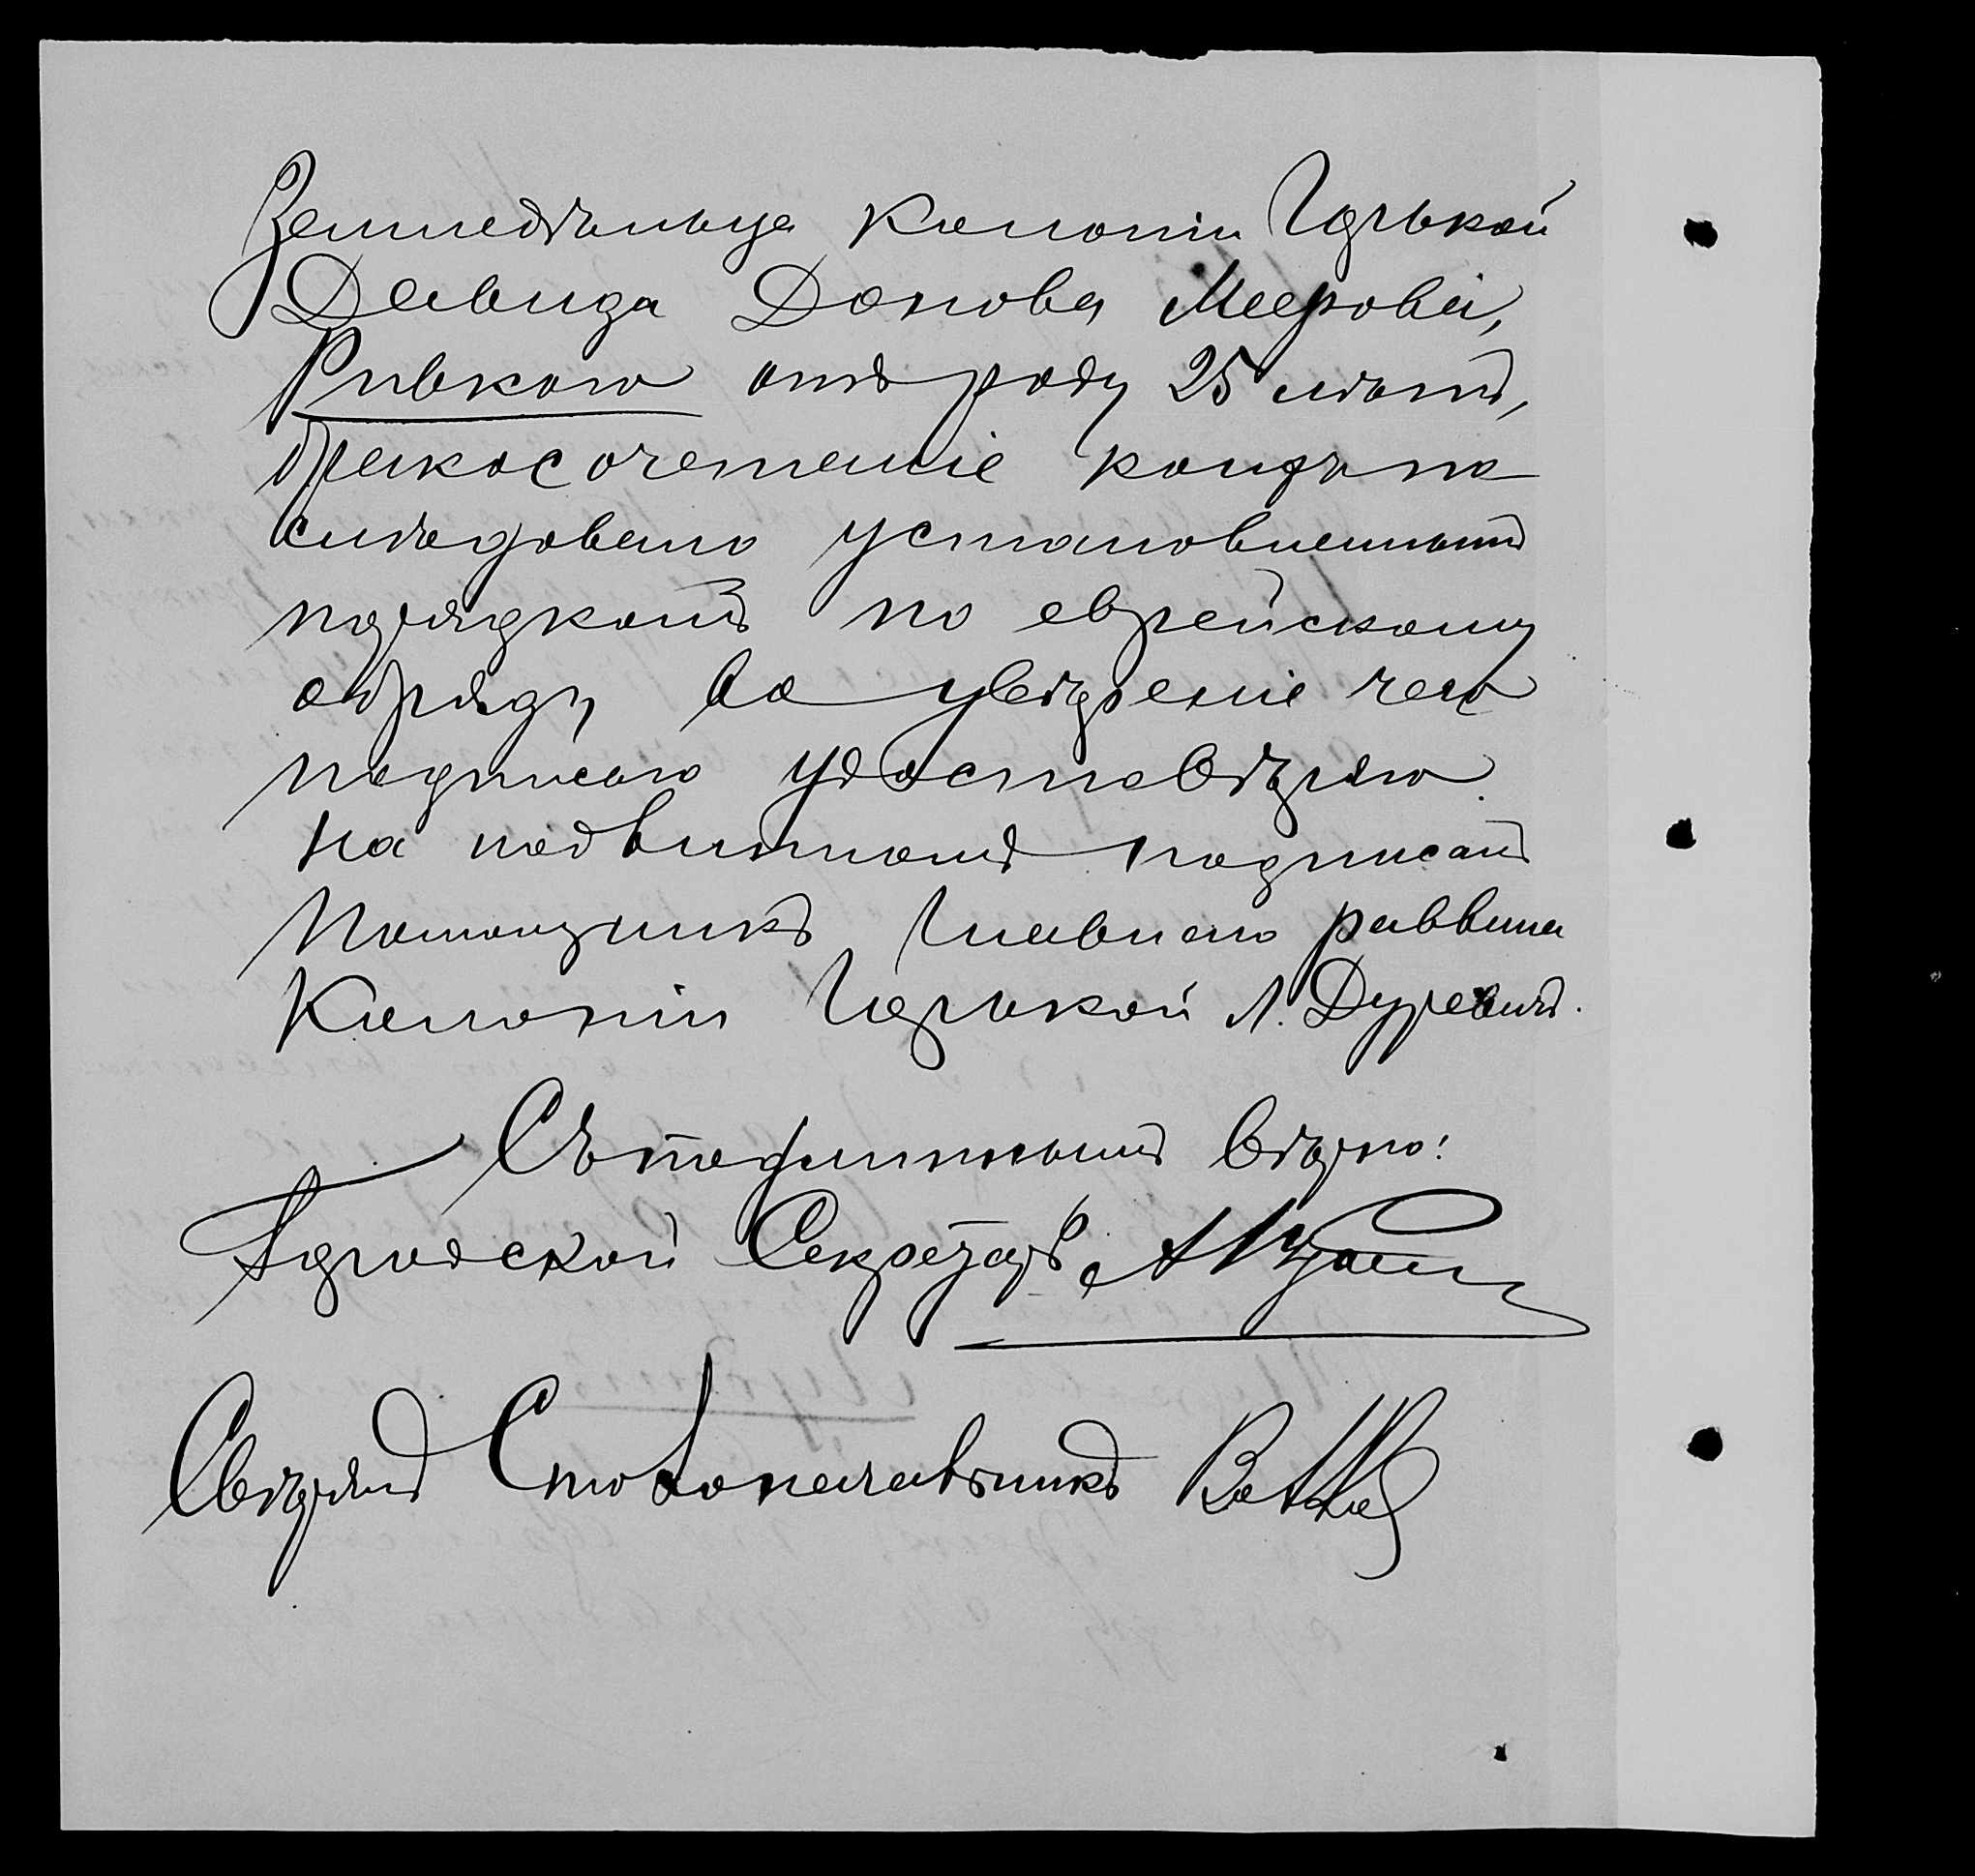 Земледѣльца Колоніи Горькой
Давида Донова Меерова,
Ривкою отъ роду 25 лѣтъ,
бракосочетаніе коихъ по
слѣдовало установленнымъ
порядкомъ по еврейскому
обряду, во увѣреніе чего
подписью удостовѣряю.
На подлинномъ подписалъ
Помощникъ Главнаго раввина
Колоніи Горькой Л. Гуревичъ.
Съ подлиннымъ вѣрно:
Городской Секретарь
Свѣрялъ Столоначальникъ